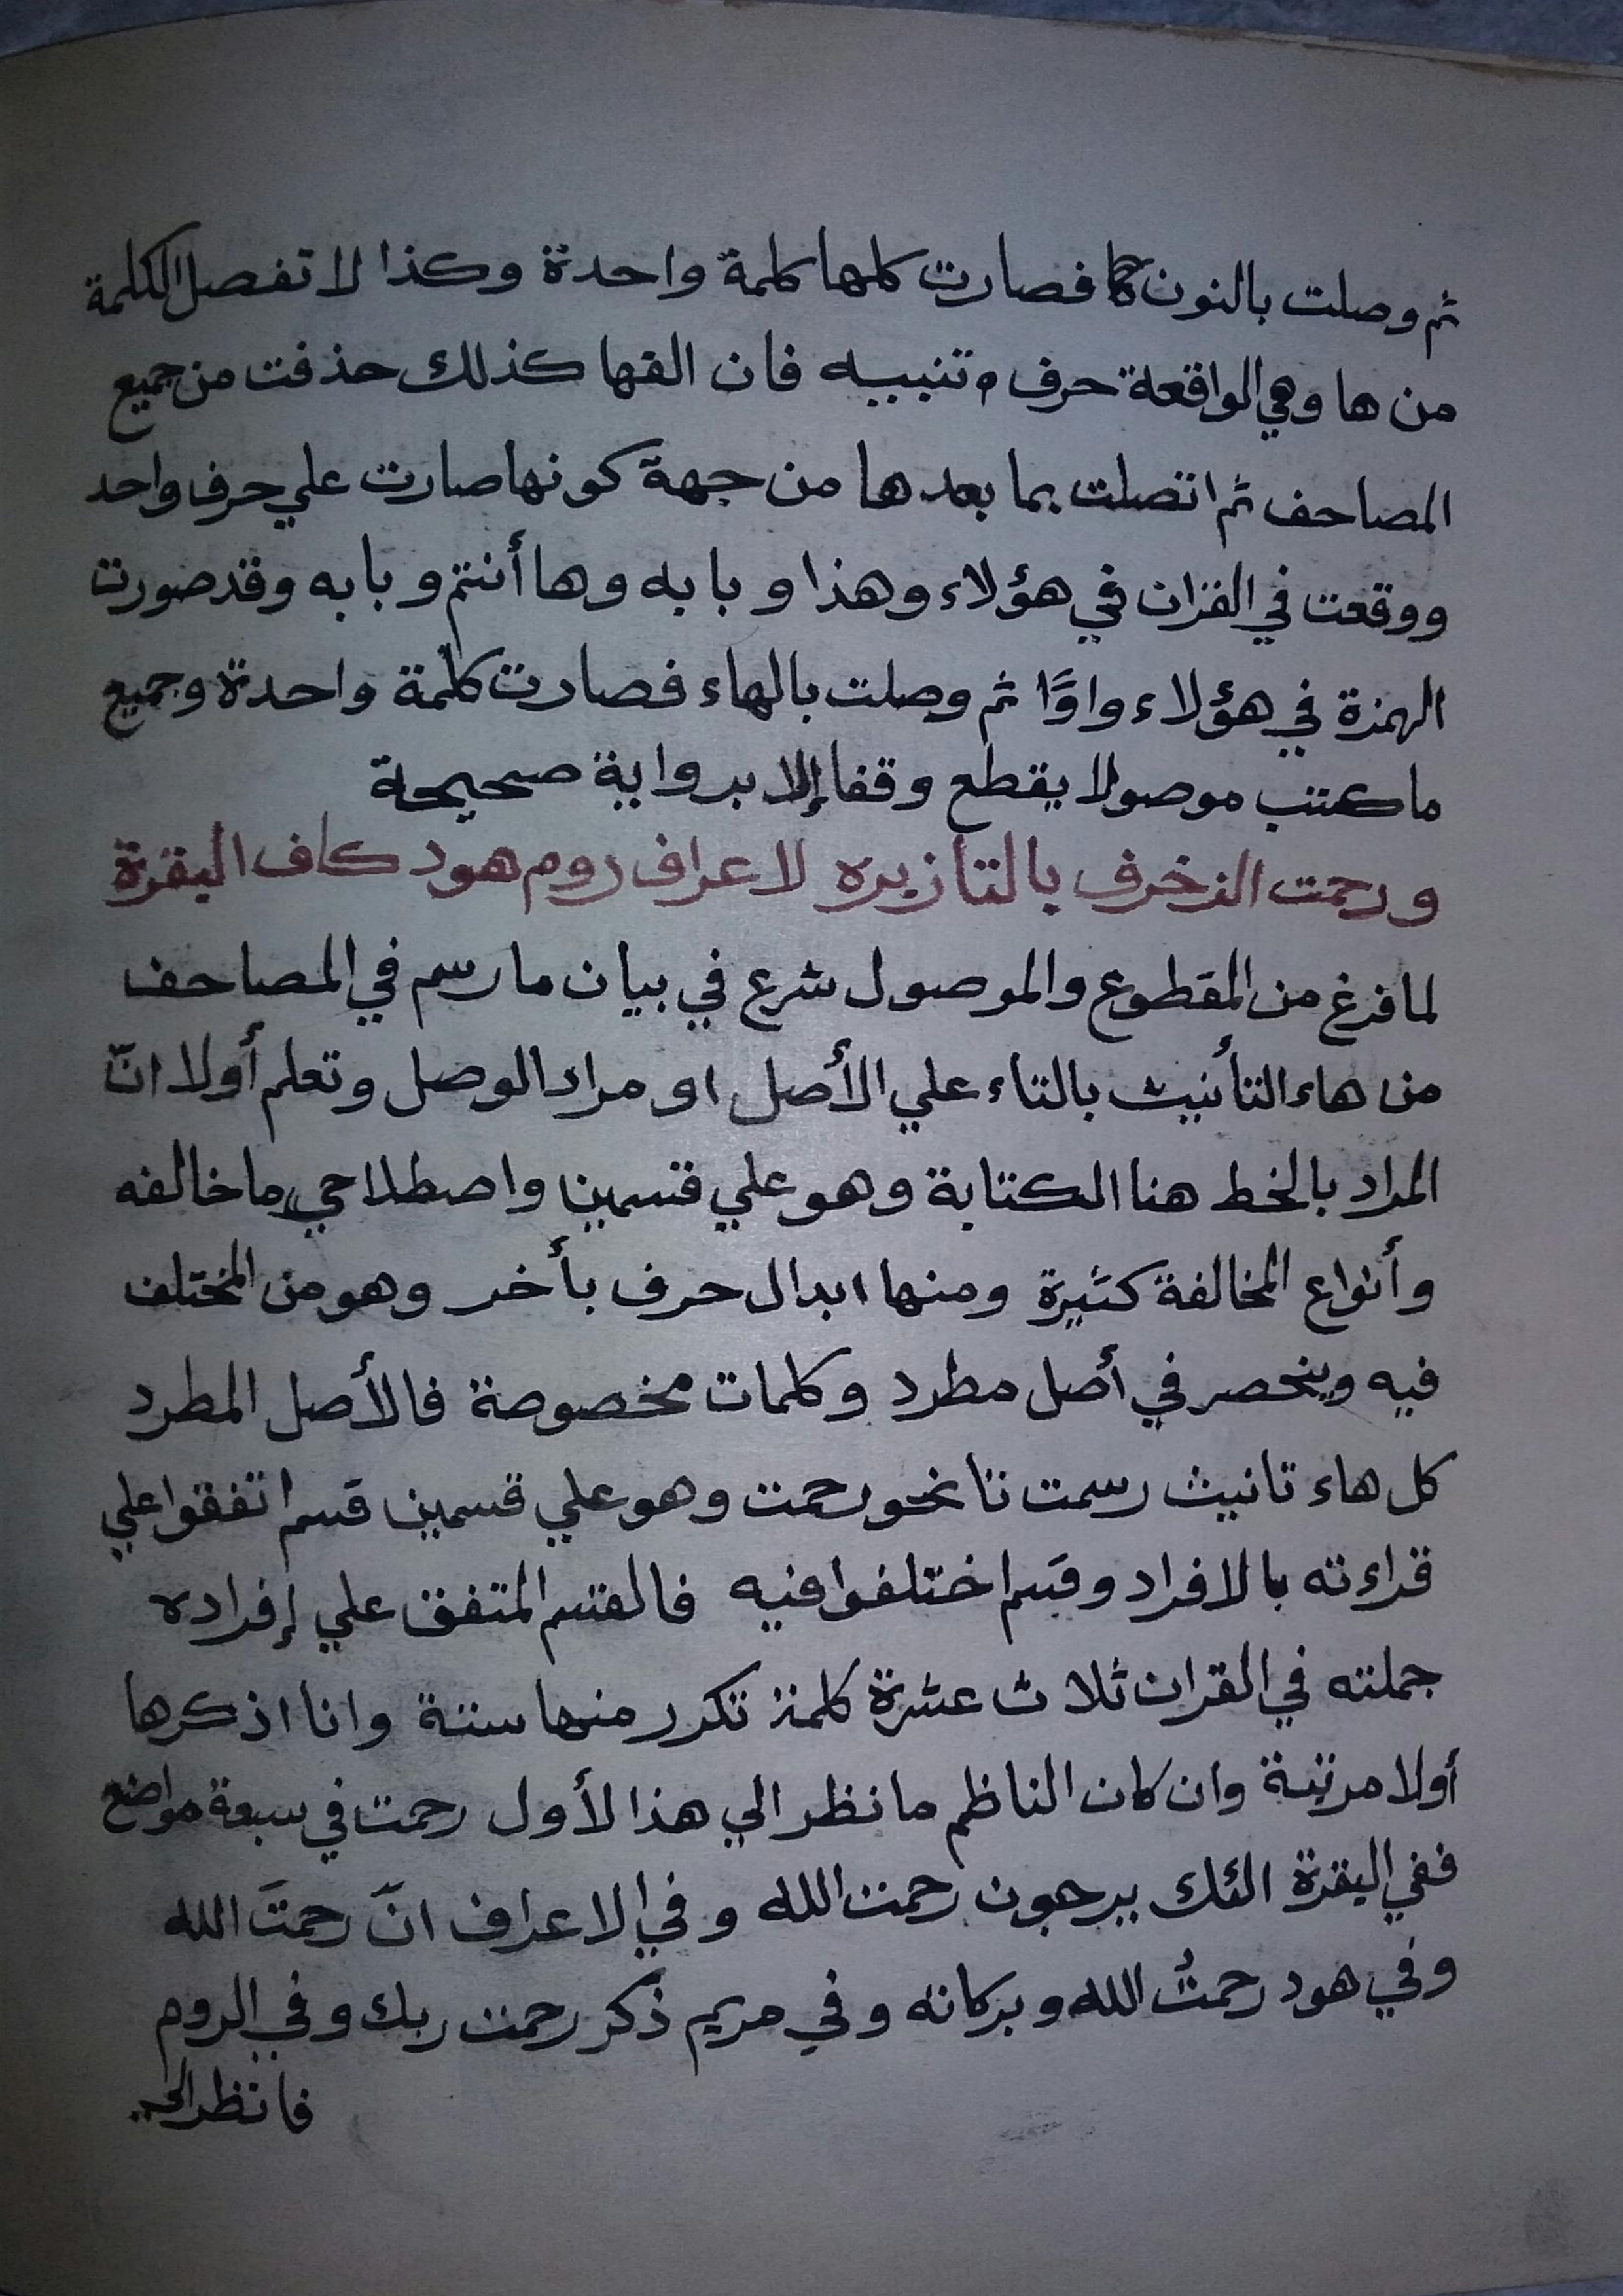 ثم وصلت بالنون كما فصارت كلها كلمة واحدة وكذا لا تفصل الكلمة
من ها وهي الواقعة حرف تنبيه فان الفها كذلك حذفت من جميع
المصاحف ثم اتصلت بما بعدها من جهة كونها صارت علي حرف واحد
ووقعت في القران في هؤلاء وهذا و بابه وها أنتم و بابه وقد صورت
الهمزة في هؤلاء واوًا ثم وصلت بالهاء فصارت كلمة واحدة وجميع
ما كتب موصولا يقطع وقفا إلا برواية صحيحة
ورحمت الزخرف بالتا زبره لاعراف روم هود كاف البقرة
لما فرغ من المقطوع والموصول شرع في بيان ما رسم في المصاحف
من هاء التأنيث بالتاء علي الأصل او مراد الوصل وتعلم أولا انّ
المراد بالخط هنا الكتابة وهو علي قسمين واصطلاحي ما خالفه
وأنواع المخالفة كثيرة ومنها ابدال حرف بأخر وهو من المختلف
فيه وينحصر في أصل مطرد وكلمات مخصوصة فالأصل المطرد
كل هاء تانيث رسمت تا نحو رحمت وهو علي قسمين قسم اتفقوا علي
قراءته بالافراد وقسم اختلفوا فيه فالقسم المتفق علي إفراده
جملته في القران ثلاث عشرة كلمة تكرر منها ستة وانا اذكرها
أولا مرتبة وان كان الناظم ما نظر الي هذا الأول رحمت في سبعة مواضع
ففي البقرة الئك يرجون رحمت الله و في الاعراف انّ رحمتَ الله
وفي هود رحمتُ الله وبركاته وفي مريم ذكر رحمت ربك وفي الروم
فانظر الي